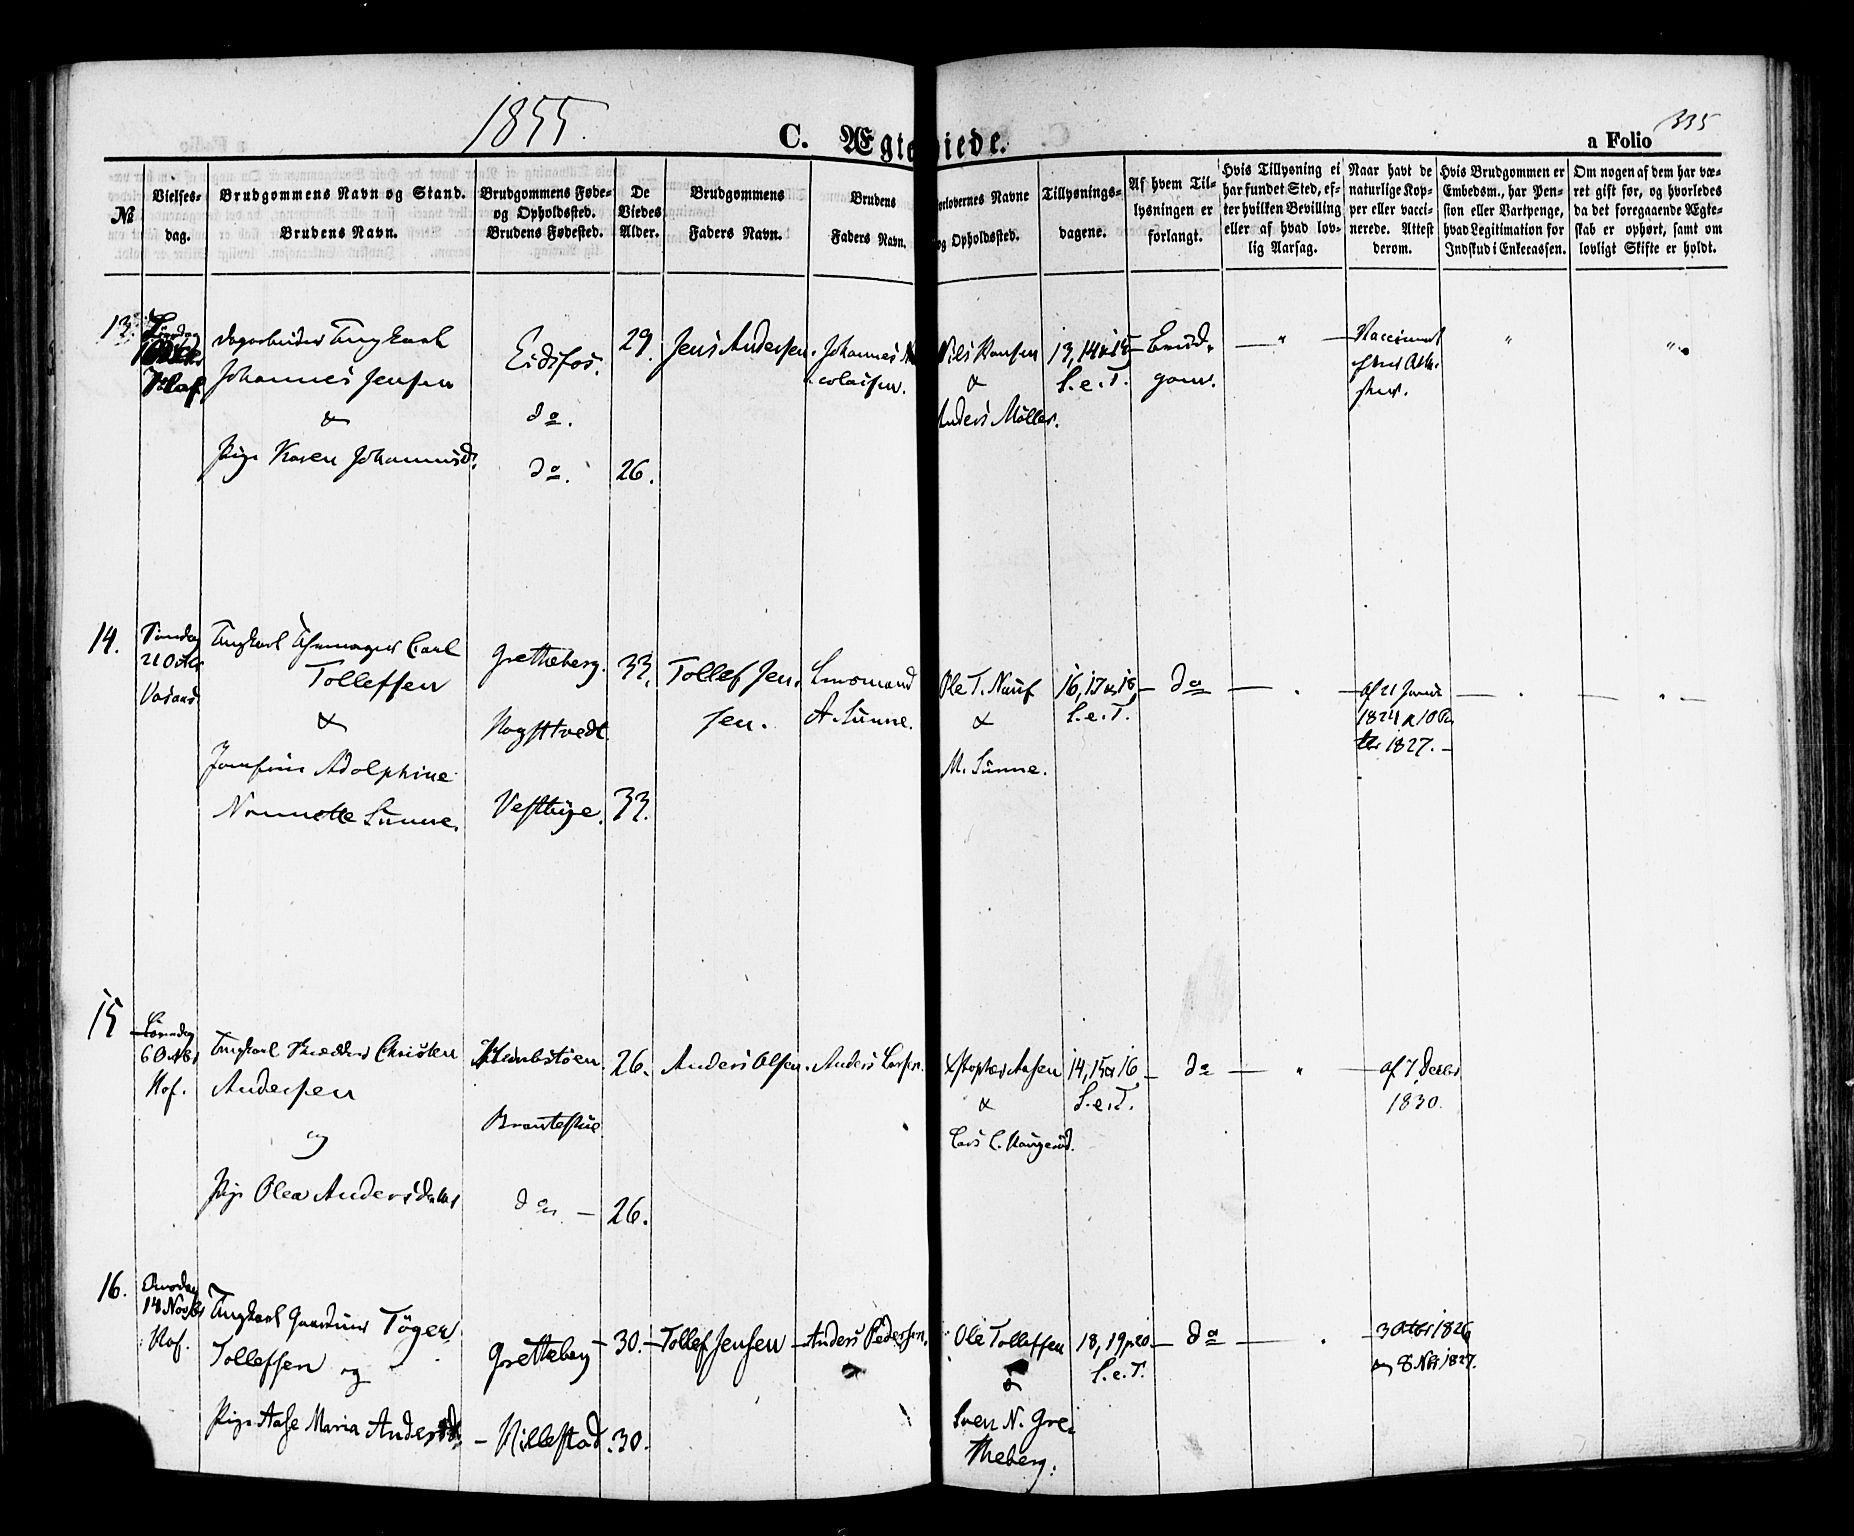 1855.
C. Ægteviede.
335
a Folio
No
Vielses-
dag.
Brudgommens Navn og Stand.
Brudens Navn.
Brudgommens Føde-
og Opholdssted.
Brudens Fødested.
De
Viedes
Alder.
Brudgommens
Faders Navn.
Brudens
Faders Navn.
orlovernes Navne
og Opholdssted.
Tillysnings-
dagene.
Af hvem Til-
lysningen er
forlangt.
Hvis Tillysning ei
har fundet Sted, ef-
ter hvilken Bevilling
eller af hvad lov-
lig Aarsag.
Naar havt de
naturlige Kop-
per eller vacci-
nerede. Attest
derom.
Hvis Brudgommen er
Embedsm., har Pen-
sion eller Vartpenge,
hvad Legitimation for
Indskud i Enkecassen.
Om nogen af dem har væ-
ret gift før, og hvorledes
da det foregaaende Ægte-
skab er ophørt, samt om
lovligt Skifte er holdt.
13.
Hof
Dagarbeider Ungkarl
Johannes Jensen
&
Pige Karen Johannesd.
Eidsfos.
do.
do.
29.
26.
Jens Andersen.
Johannes Ni
colaisen.
Nils Hansen
&
Anders Møller.
13, 14 & 15
S. e. T.
Brud-
gom.
"
"
"
14.
Søndag
21 Octbr
Vasaas
Ungkarl Carl
Tollefsen
&
Josefine Adolphine
Nannette Sunne.
Gretteberg.
Hogstvedt
33.
33.
Tollef Jen-
sen.
Lensmand
A. Sunne.
Ole T. Nauf
&
M. Sunne.
16, 17 & 18
S. e. T.
do
af 21
1824 & 10
1827.
15
Løverdag
6 Octbr
Hof.
Ungkarl Skrædder Christen
Andersen
og
Pige Olea Andersdatter
do
26.
26.
Anders Olsen.
Anders Larsen.
Aasen
&
Lars C. Haugerød.
14, 15 & 16
S. e. T.
do
"
af 7 Decbr
1830.
16.
Onsdag
14 Novbr
Hof.
Ungkarl Gaardmd Töger
Tollefsen og
Pige Aase Maria Andersd.
Gretteberg
Hillestad.
30.
30.
Tollef Jensen
Anders Pedersen.
Ole Tollefsen
&
Sven N. Gre-
theberg.
18, 19 & 20
S. e. T.
do
3 Octbr 1826
og 8 1827.